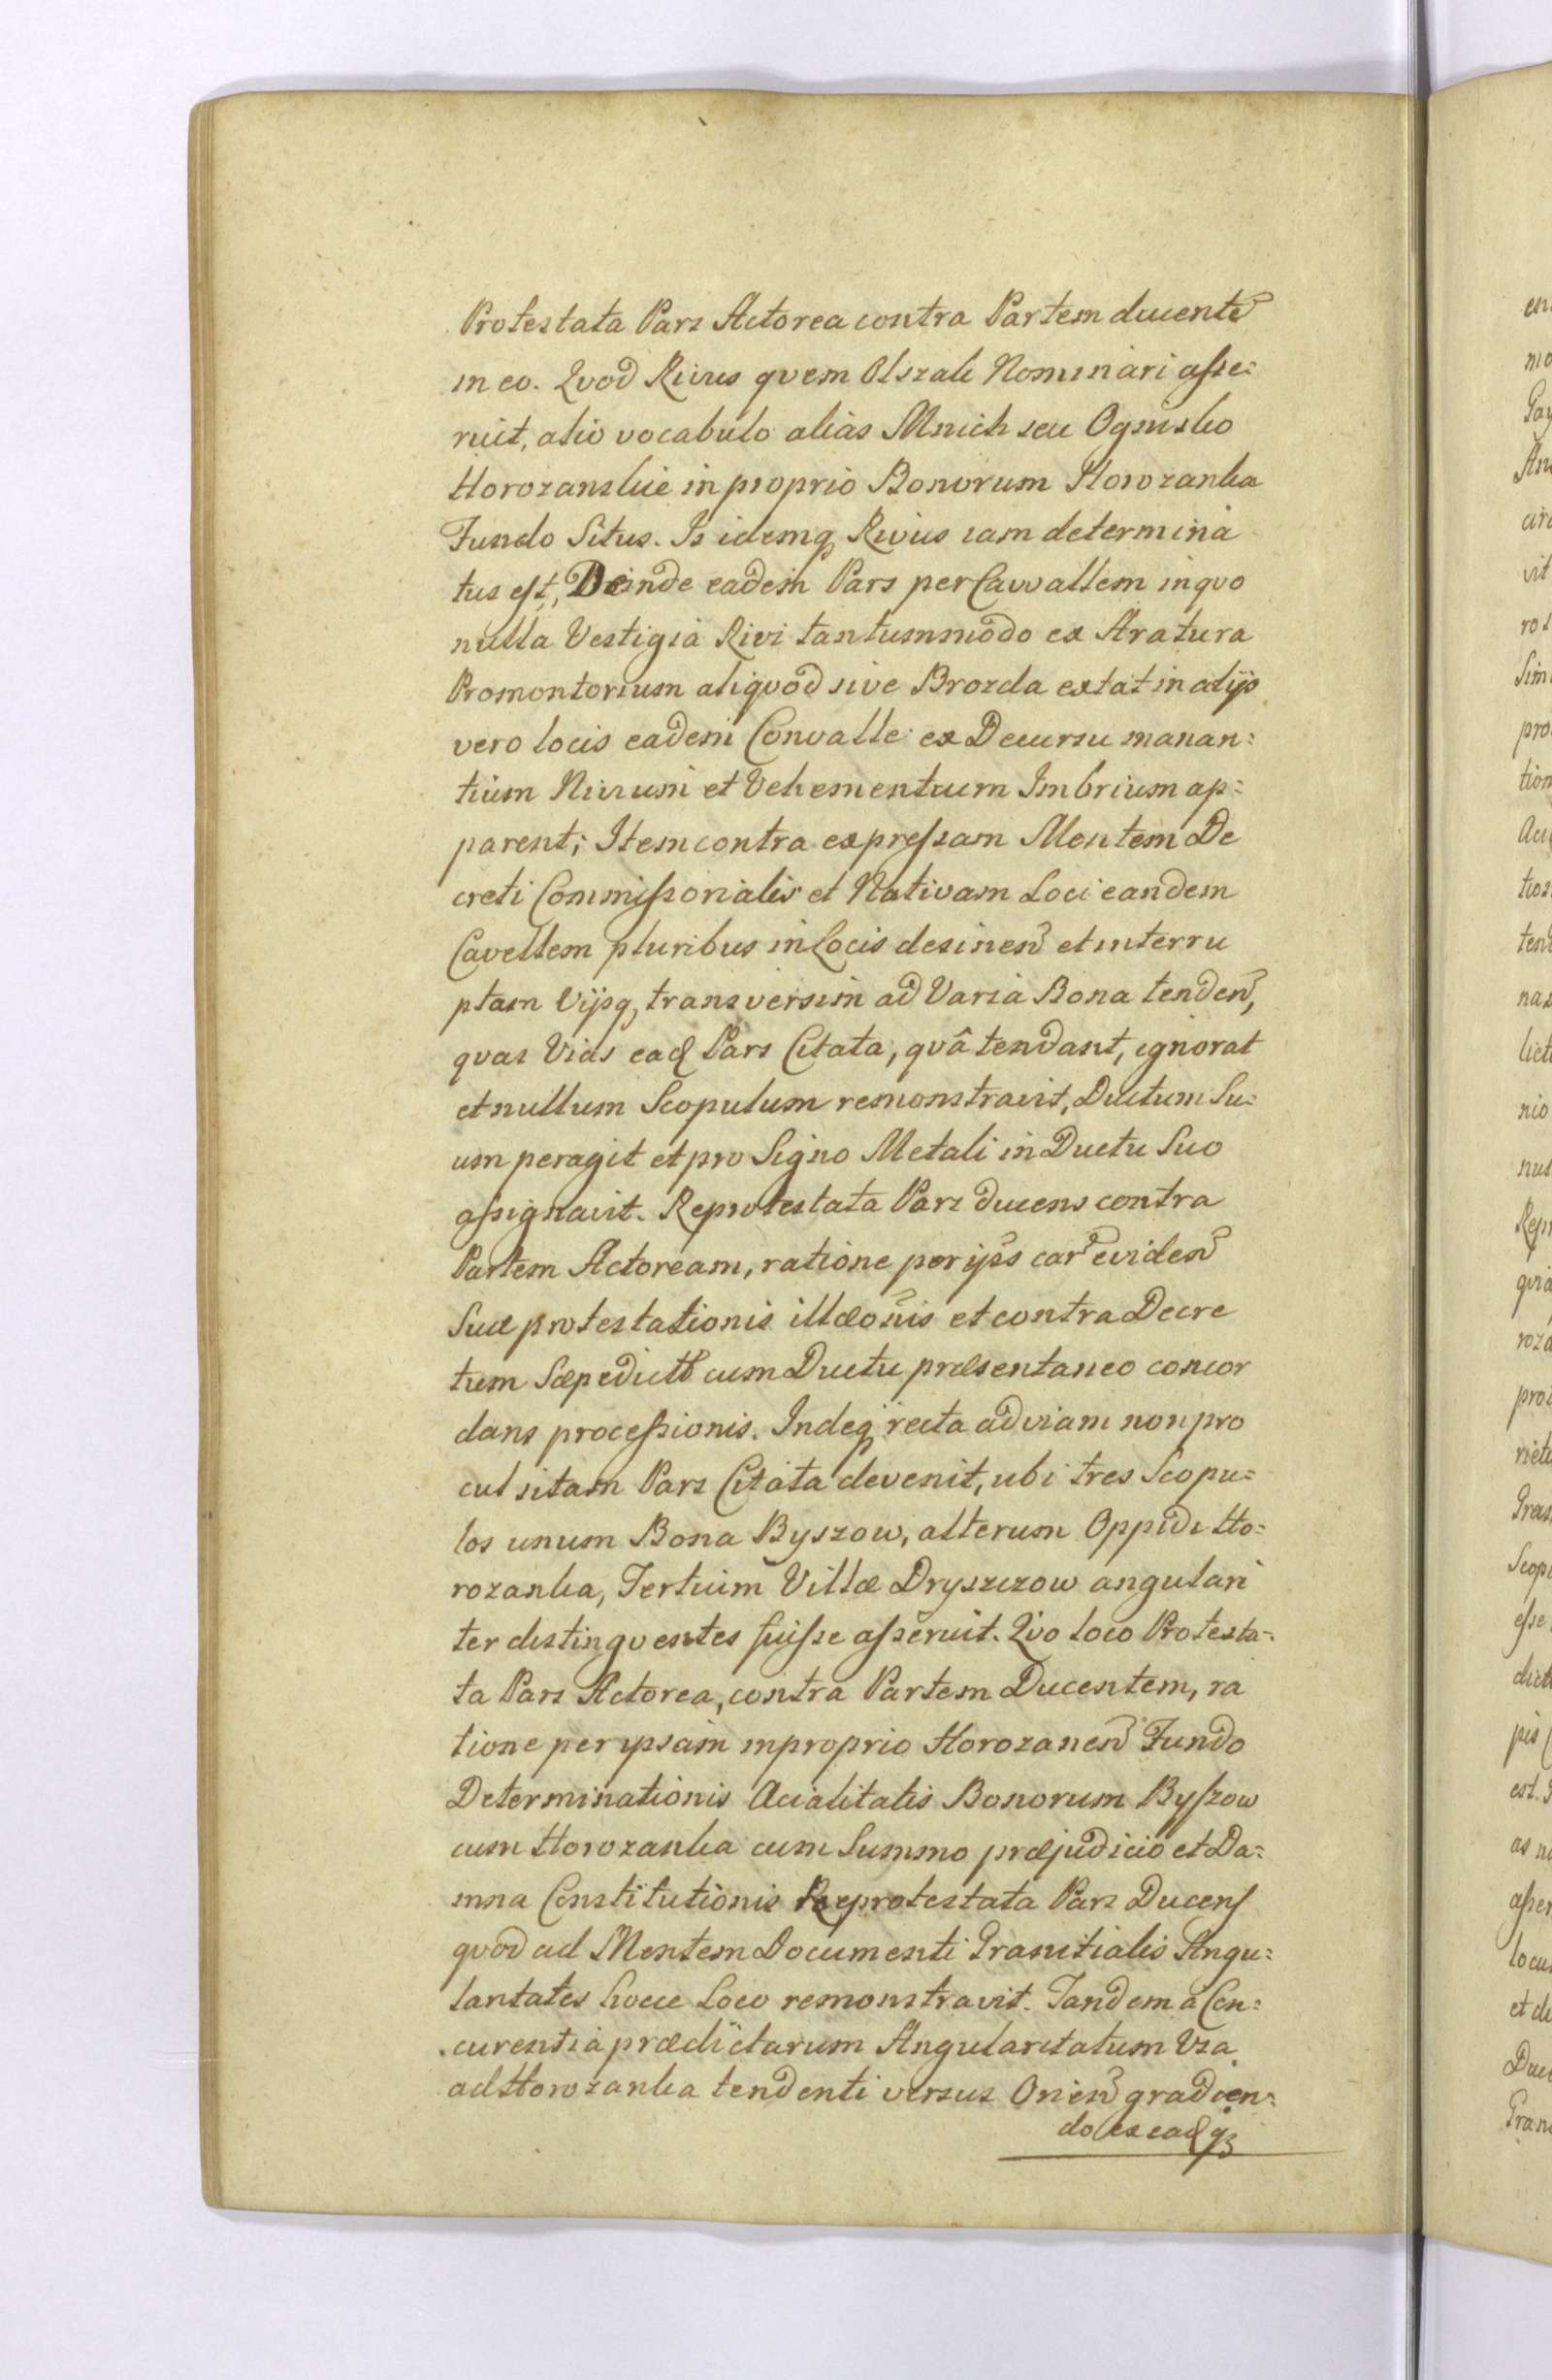 Protestata Pars Actorea contra Partem ducentē
in eo. Quod Rivus quem Olszali Nominari asse=
ruit, alio vocabulo alias Mnich seu Ognisko
Horozanskie in proprio Bonorum Horozanka
Fundo Situs. Is idemq Rivus iam determina
tus est, Deinde eadem Pars per Cavvallem in quo
nulla Vestigia Rivi tantummodo ex Aratura
Promontorium aliquod sive Brozda extat in alijs
vero locis eadem Convalle ex Decursu manan=
tium Nivium et Vehementium Imbrium ap=
parent; Item contra expressam Mentem De
creti Commissorialis et Nativam Loci eandem
Cavellem pluribus in Locis desinen et interru
ptam Vijsq, transversim ad Varia Bona tenden,
quas Vias ead Pars Citata, quâ tendant, ignorat
et nullum Scopulum remonstravit, Ductum Su=
um peragit et pro Signo Metali in Ductu Suo
assignavit. Reprotestata Pars ducens contra
Partem Actoream, ratione per ips car eviden
Suæ protestationis illæonis et contra Decre
tum Sæpedictt cum Ductu præsentaneo concor
dans processionis. Indeq recta ad viam non pro
cul sitam Pars Citata devenit, ubi tres Scopu=
los unum Bona Byszow, alterum Oppidi Ho=
rozanka, Tertium Villæ Dryszczow angulari
ter distinguentes fuisse asseruit. Quo loco Protesta=
ta Pars Actorea, contra Partem Ducentem, ra
tione per ipsam in proprio Horozanen Fundo
Determinationis Acialitatis Bonorum Byszow
cum Horozanka cum Summo præjudicio et Da=
mna Constitutionis Reprotestata Pars Ducens
quod ad Mentem Documenti Granitialis Angu=
laritates hocce Loco remonstravit. Tandem a Con=
curentia prædictarum Angularitatum Via
ad Horozanka tendenti versus Orien gradien=
do ex eadqз
en
mo
Gay
An
circ
vit
ros
Sim
pro
tion
Aci
tend
nas
lict
nio
nus
Repr
quia
roza
pro
riet
Gran
Scop
esse
dict
pis
est.
as n
asser
locu
et d
Duc
Gran